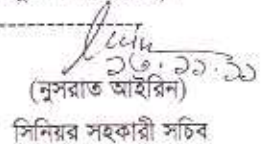 ২৬.১১.১৯
(নুসরাত আইরিন)
সিনিয়র সহকারী সচিব